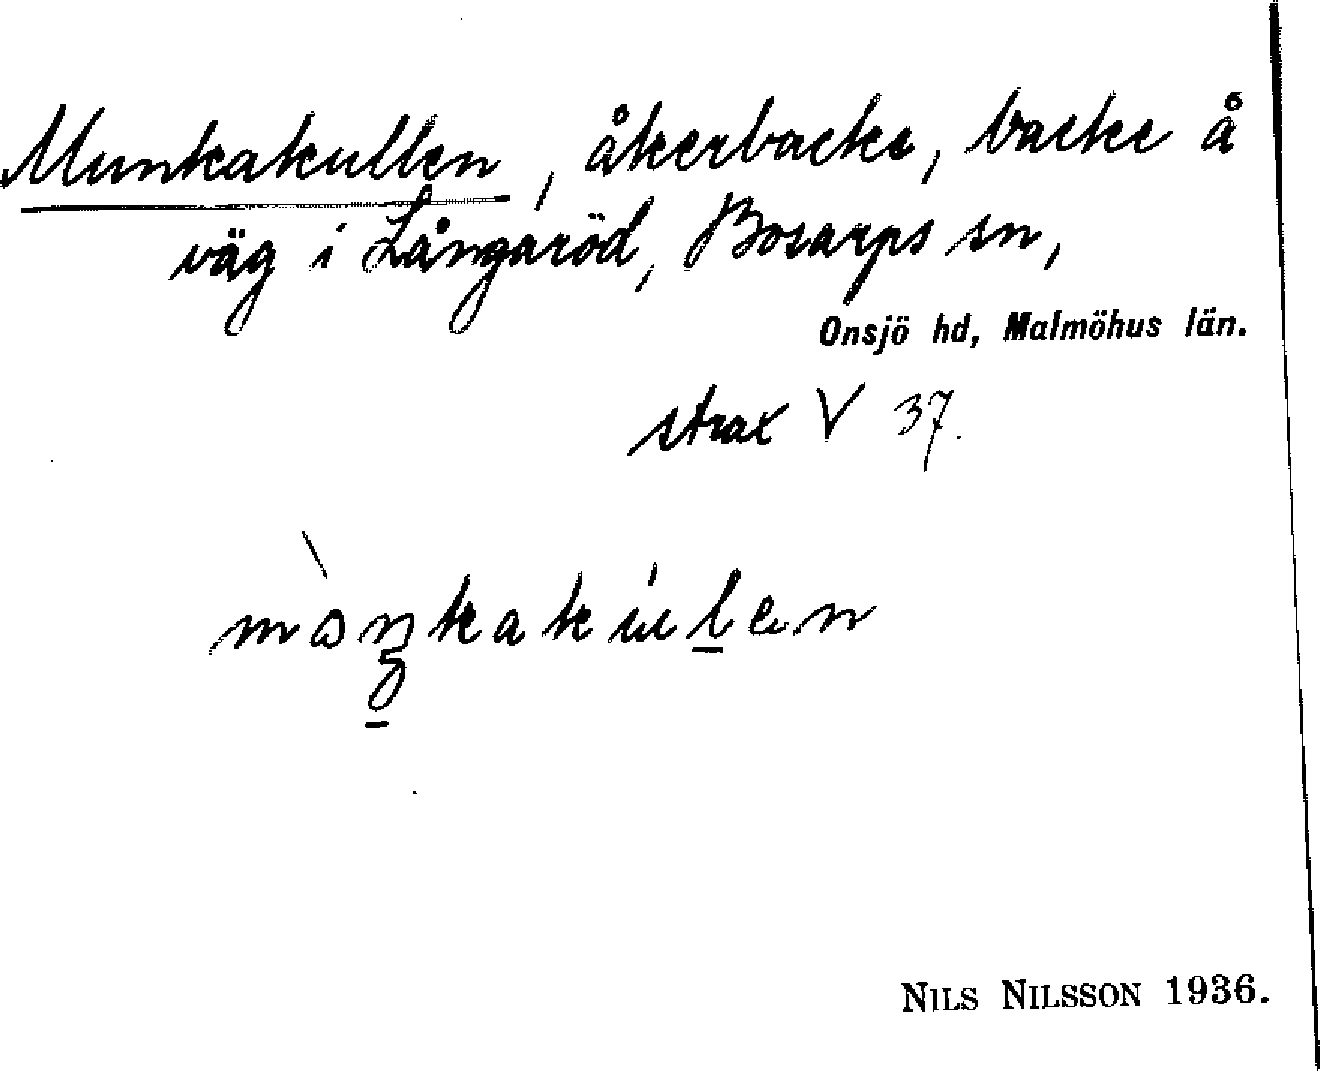 Munkakullen, åkerbacke, backe å
väg i Långaröd, Bosarps sn,
Onsjö hd, Malmöhus län.
strax V 37.
NILS NILSSON 1936.